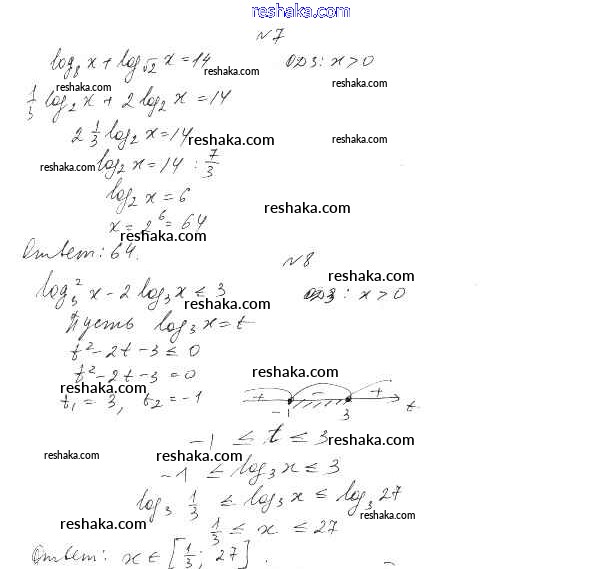 reshaka.com
№7
log₈ x + log_√2 x = 14 ОДЗ: x > 0
reshaka.com
reshaka.com reshaka.com
1/3 log₂ x + 2 log₂ x = 14
2 1/3 log₂ x = 14 reshaka.com reshaka.com
reshaka.com log₂ x = 14 : 7/3
log₂ x = 6
reshaka.com
x = 2⁶ = 64
reshaka.com
Ответ: 64.
№8
reshaka.com
log₃² x - 2 log₃ x ≤ 3 ОДЗ: x > 0
reshaka.com
Пусть log₃ x = t
t² - 2t - 3 ≤ 0
t² - 2t - 3 = 0 reshaka.com
reshaka.com
t₁ = 3, t₂ = -1 + - + -1 3 t
-1 ≤ t ≤ 3 reshaka.com
reshaka.com reshaka.com
-1 ≤ log₃ x ≤ 3
log₃ 1/3 ≤ log₃ x ≤ log₃ 27
reshaka.com
reshaka.com 1/3 ≤ x ≤ 27
Ответ: x ∈ [1/3; 27].
reshaka.com